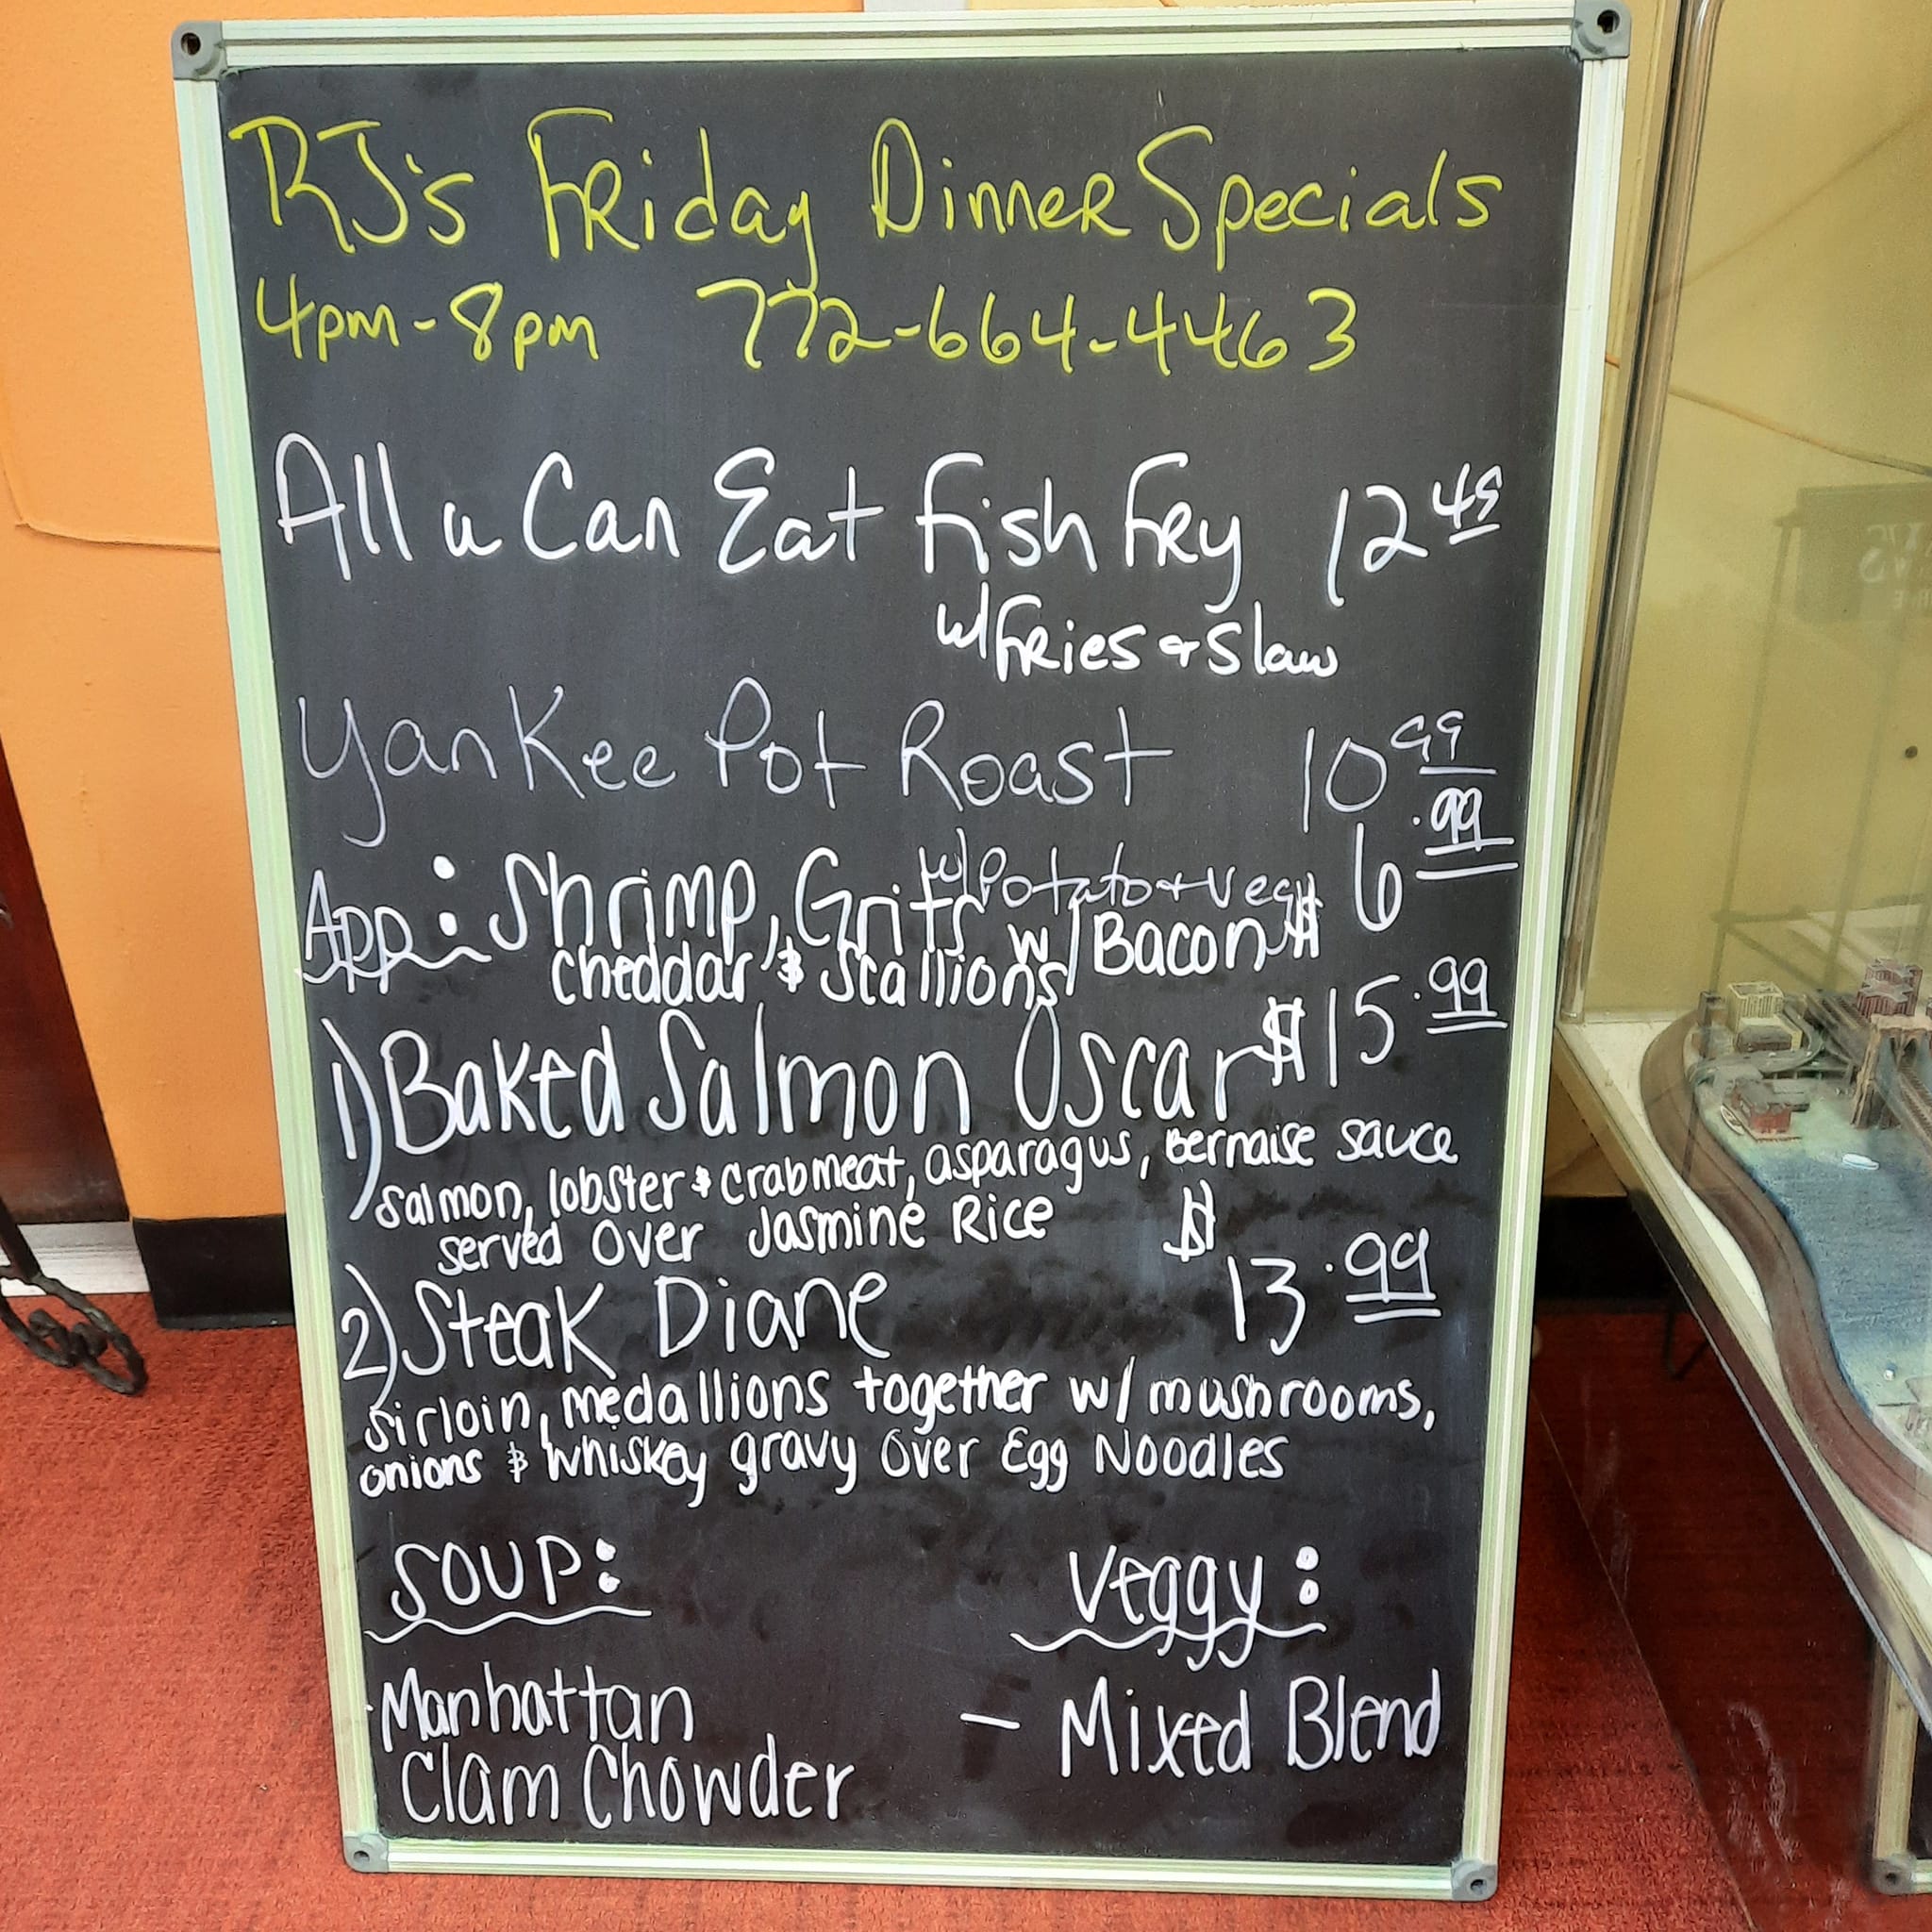 RJ's Friday Dinner Specials
4pm-8pm 772-664-4463
All u Can Eat Fish Fry 12 49
w/Fries & Slaw
Yankee Pot Roast 10 99
w/Potato & Veg
App: Shrimp, Grits w/ Bacon, $6.99
cheddar, & Scallions
1) Baked Salmon Oscar $15.99
Salmon, lobster & crabmeat, asparagus, Bernaise sauce
served Over Jasmine Rice
2) Steak Diane $13.99
Sirloin, medallions together w/ mushrooms,
onions & whiskey gravy over Egg Noodles
SOUP: Veggy:
Manhattan - Mixed Blend
Clam Chowder